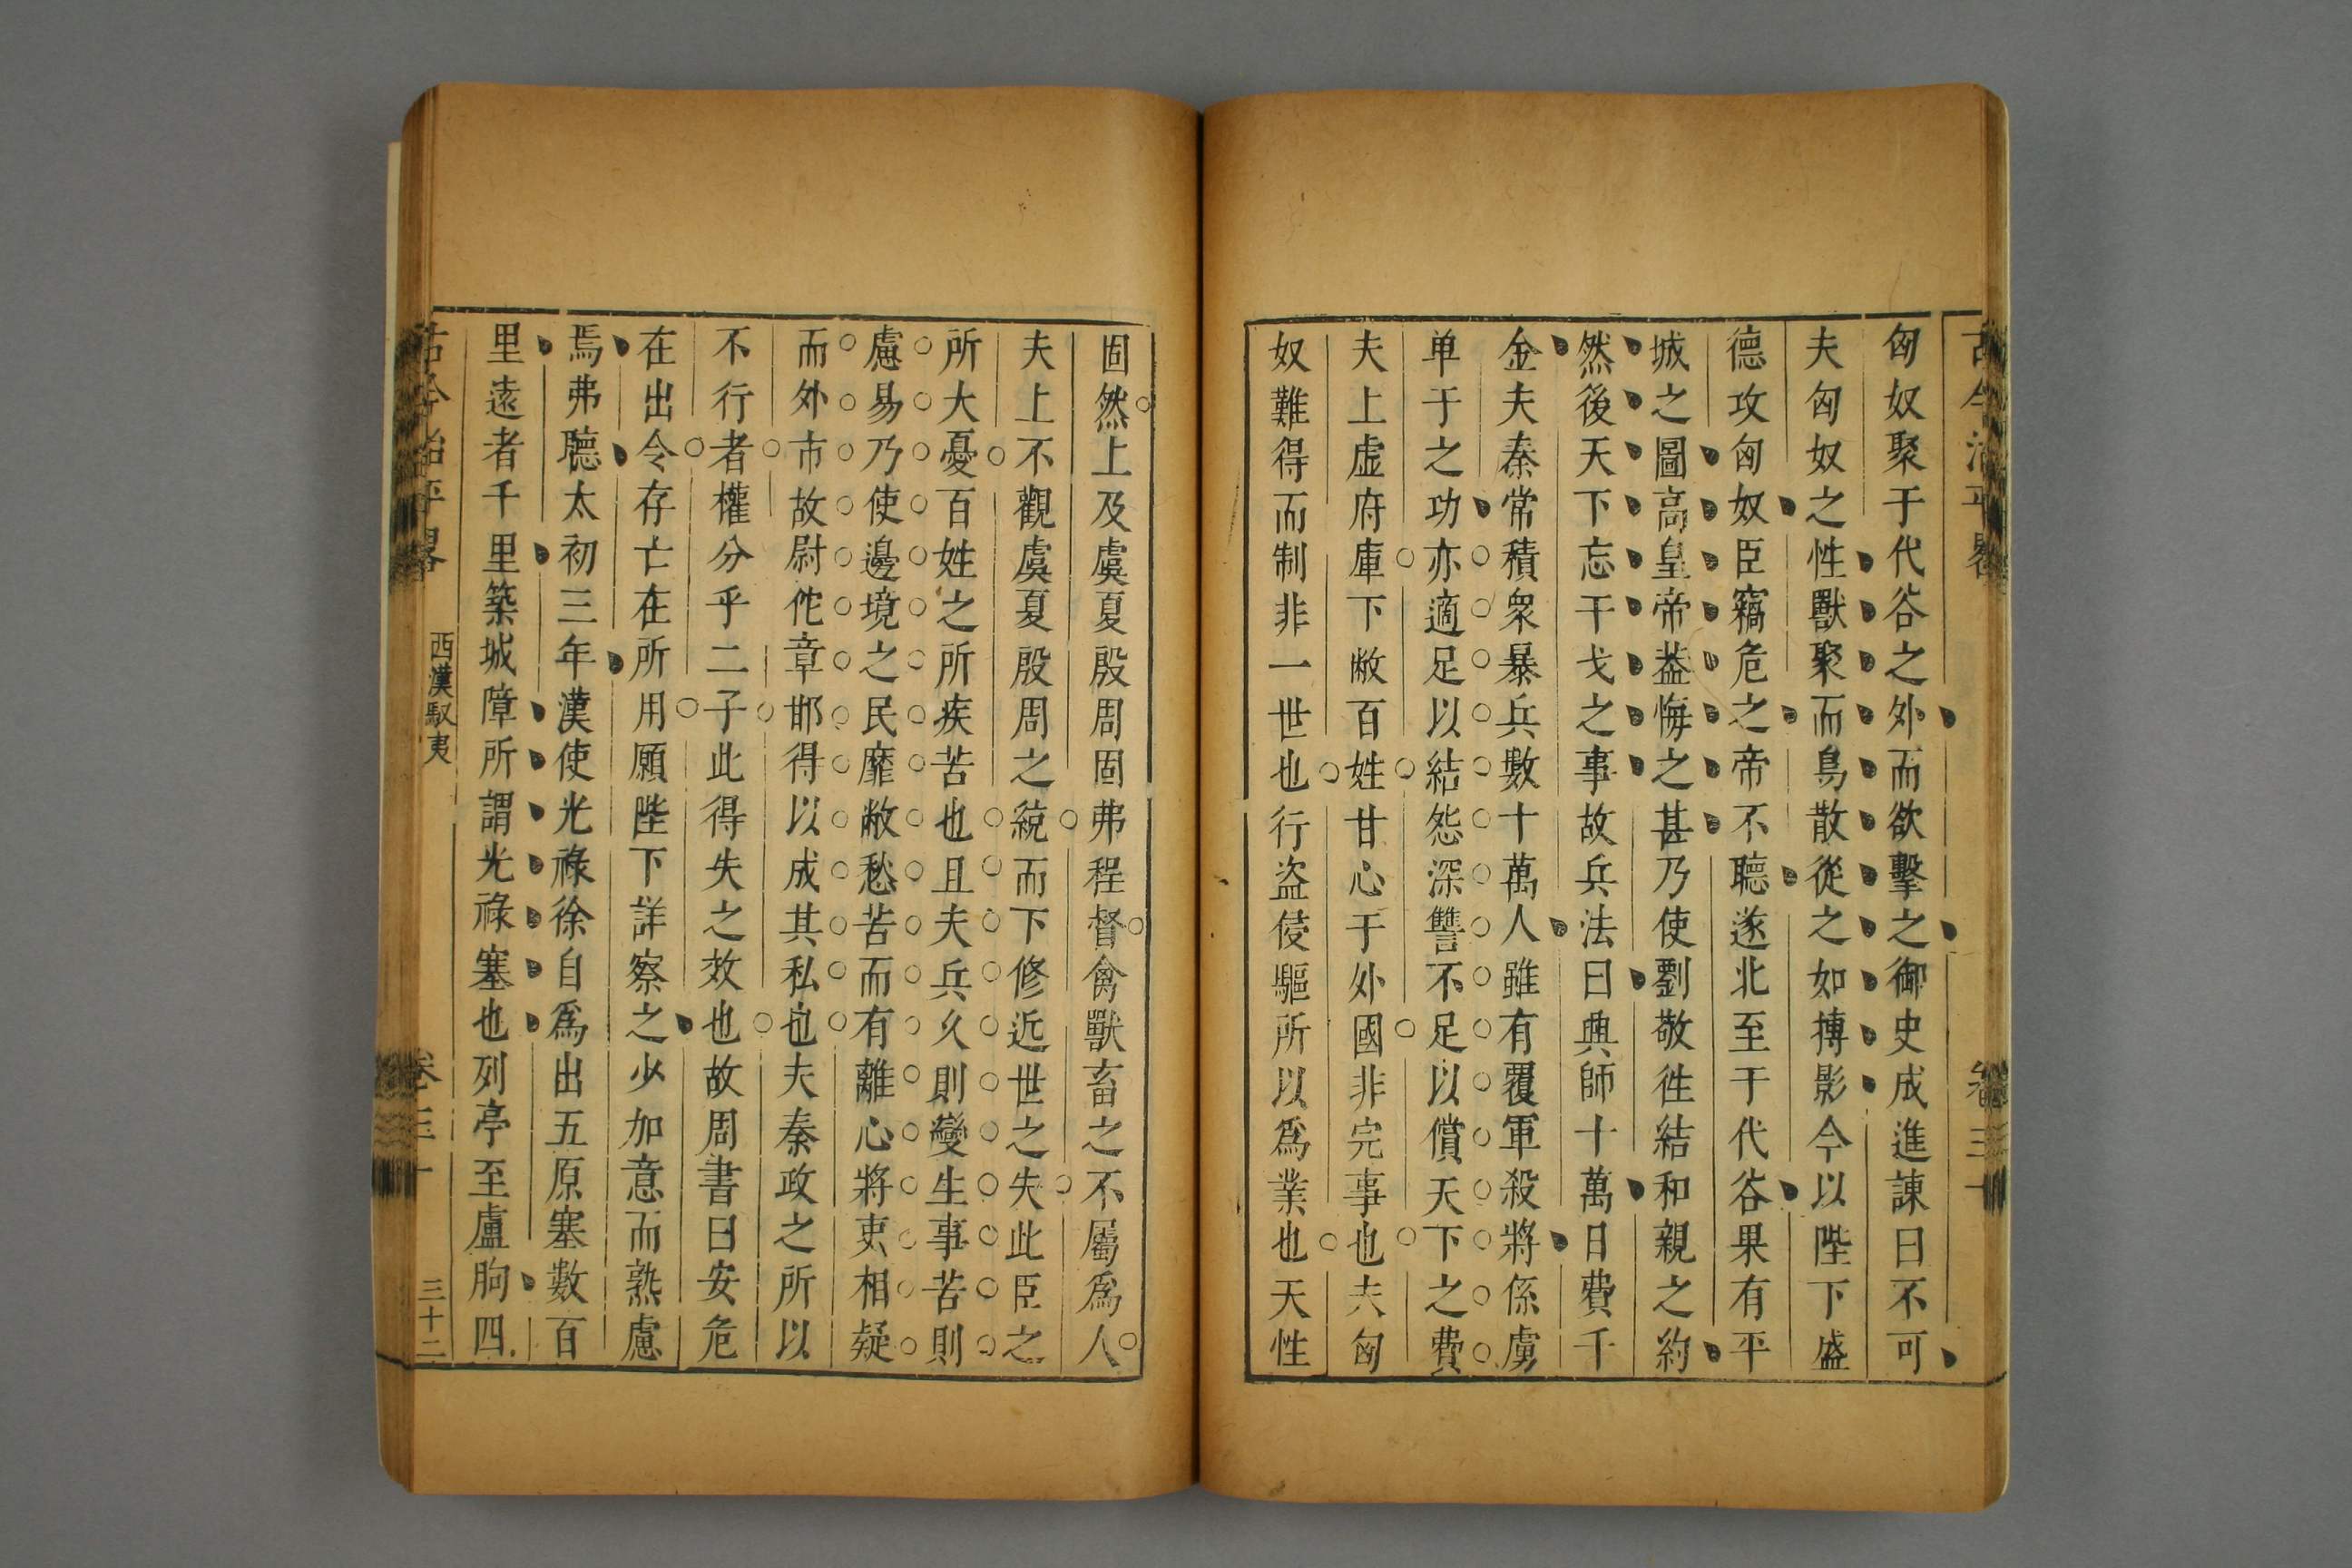 匈奴聚于代谷之外而欲擊之御史成進諫曰不可
夫匈奴之性獸聚而鳥散從之如搏影今以陛下盛
德攻匈奴臣竊危之帝不聽遂北至于代谷果有平
城之圖高皇帝葢悔之甚乃使劉敬徃結和親之約
然後天下忘干戈之事故兵法曰興師十萬日費千
金夫秦常積衆暴兵數十萬人雖有覆軍殺將係虜
单于之功亦適足以結怨深讐不足以償天下之費
夫上虚府庫下敝百姓甘心于外國非完事也夫匈
奴難得而制非一世也行盗侵驅所以爲業也天性
固然上及虞夏殷周固弗程督禽獸畜之不屬爲人
夫上不觀虞夏殷周之統而下修近世之失此臣之
所大憂百姓之所疾苦也且夫兵久則變生事苦則
慮易乃使邊境之民靡敝愁苦而有離心將吏相疑
而外市故尉佗章邯得以成其私也夫秦政之所以
不行者權分乎二子此得失之效也故周書曰安危
在出令存亡在所用願陛下詳察之少加意而熟慮
焉弗聽太初三年漢使光祿徐自爲出五原塞數百
里遠者千里築城障所謂光祿塞也列亭至盧朐四
古今治平畧
西漢馭夷
卷三十
三十二